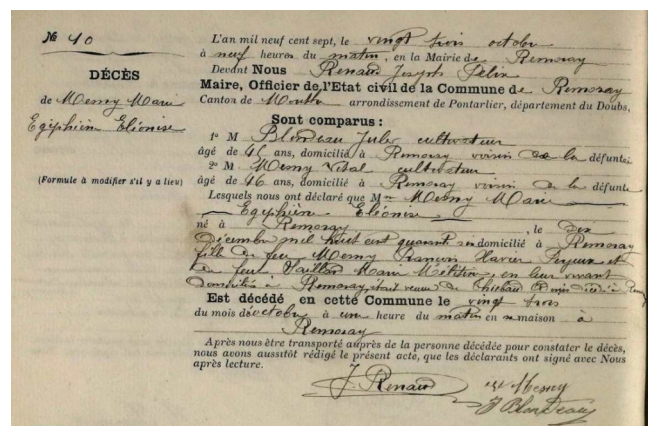 № 40
DÉCÈS
de Mesny Marie
Egiphien Eléonise
(Formule à modifier s'il y a lieu)
L'an mil neuf cent sept, le vingt trois octobre
à neuf heures du matin, en la Mairie de Remoray
Devant Nous Renaud Joseph Félix
Maire, Officier de l'Etat civil de la Commune de Remoray
Canton de Mouthe arrondissement de Pontarlier, département du Doubs,
Sont comparus :
1° M Blondeau Jules cultivateur
âgé de ans, domicilié à Remoray voisin de la défunte
2° M Mesny Vital cultivateur
âgé de 46 ans, domicilié à Remoray voisin de la défunte
Lesquels nous ont déclaré que M Mesny Marie
Egiphien Eléonise
né à Remoray, le dix
décembre mil huit cent quarante domicilié à Remoray
fille de feu Mesny François Xavier et
de feue Vaillon Marie en leur vivant
domiciliés à Remoray, était veuve de Thiébaud décédé à
Est décédé en cette Commune le vingt trois
du mois d'octobre à une heure du matin en sa maison à
Remoray
Après nous être transporté auprès de la personne décédée pour constater le décès,
nous avons aussitôt rédigé le présent acte, que les déclarants ont signé avec Nous
après lecture.
J. Renaud Mesny
J Blondeau